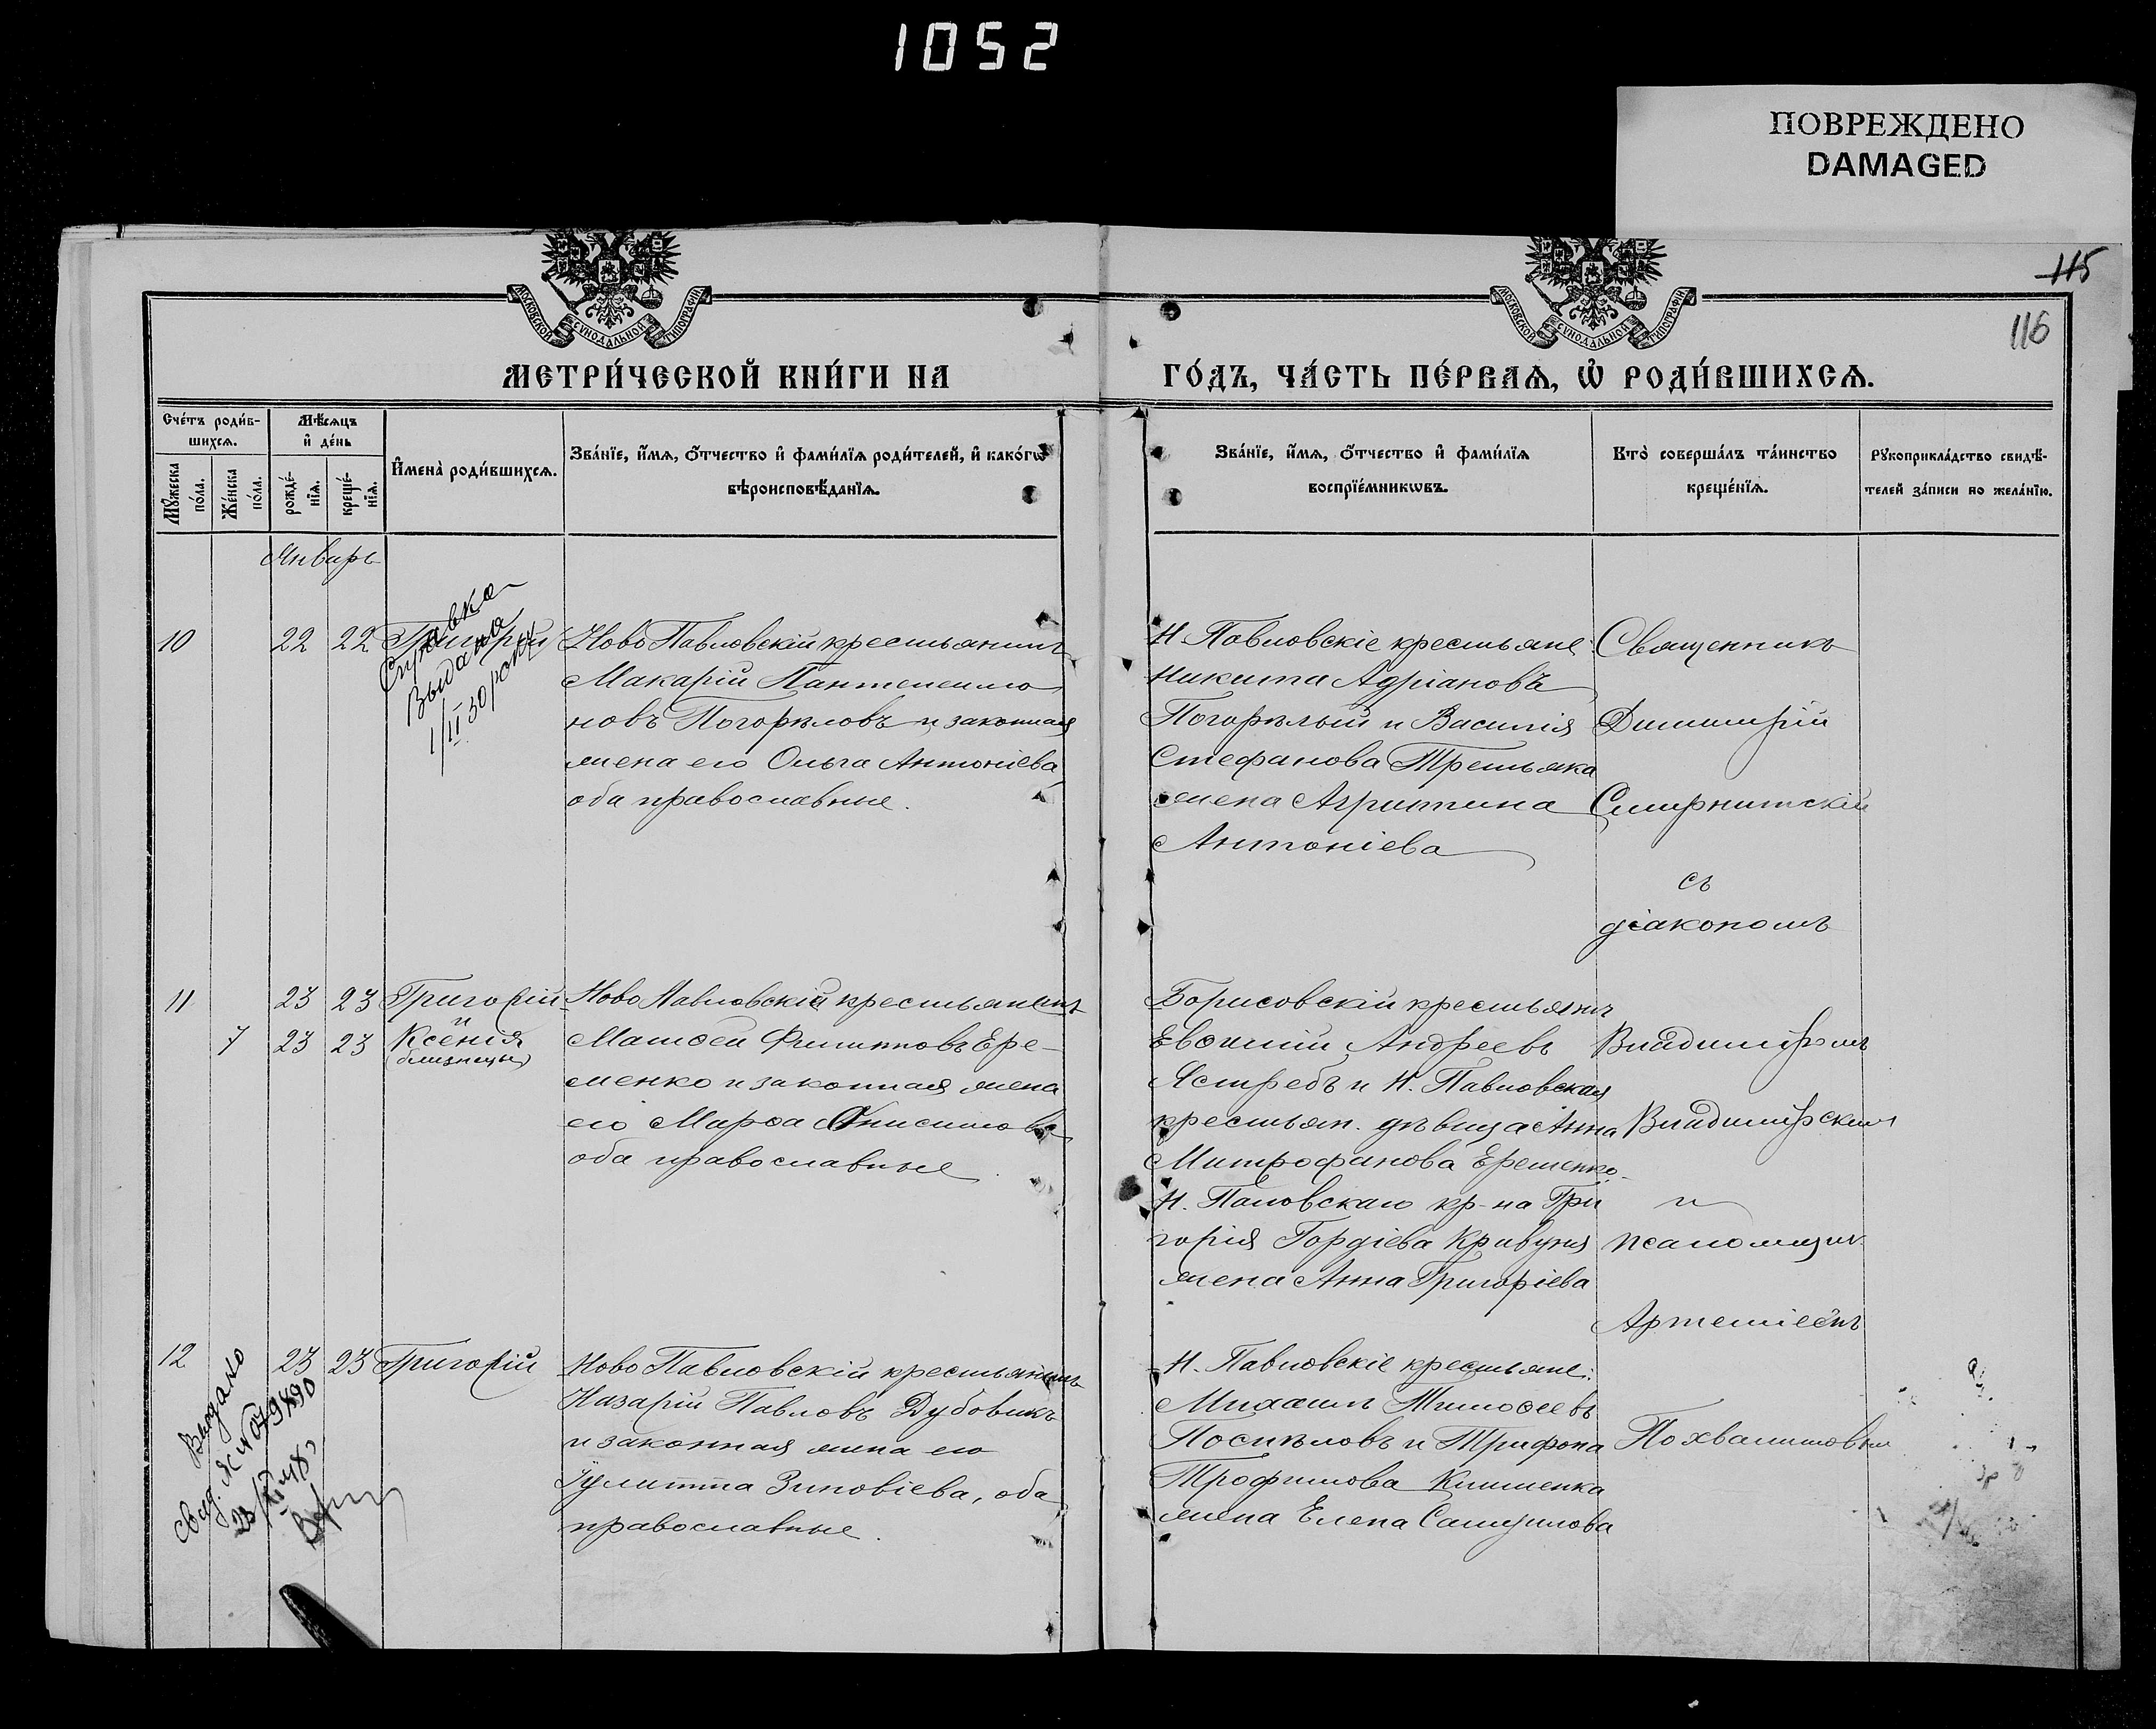 1052
ПОВРЕЖДЕНО
DAMAGED
115
116
МОСКОВСКОЙ СѴНОДАЛЬНОЙ ТИПОГРАФІИ
МОСКОВСКОЙ СѴНОДАЛЬНОЙ ТИПОГРАФІИ
МЕТРИ́ЧЕСКОЙ КНИ́ГИ НА
ГО́ДЪ, ЧА́СТЬ ПЕ́РВАѦ, Ѡ҆ РОДИ́ВШИХСѦ.
Сче́тъ роди́в-
шихсѧ.
Мꙋ́жеска
по́ла.
Же́нска
по́ла.
Мѣ́сѧцъ
и҆ де́нь
рожде́-
нїѧ.
креще́-
нїѧ.
И҆мена̀ роди́вшихсѧ.
Зва́нїе, и҆́мѧ, ѻ҆́тчество и҆ фами́лїѧ роди́телей, и҆ како́гѡ
вѣроисповѣ́данїѧ.
Зва́нїе, и҆́мѧ, ѻ҆́тчество и҆ фами́лїѧ
воспрїе́мникѡвъ.
Кто̀ соверша́лъ та́инство
креще́нїѧ.
Рꙋкоприкла́дство свидѣ́-
телей за́писи по жела́нїю.
Январь
10 22 22 Григорій
Справка
Выдана
1/II 30 року
Ново Павловскій крестьянинъ
Макарій Пантелеимо
новъ Погорѣловъ и законная
жена его Ольга Антоніева
оба православные.
Н. Павловскіе крестьяне:
Никита Адріановъ
Погорѣлый и Василія
Стефанова Третьяка
жена Агриппина
Антоніева
Священникъ
Димитрій
Смирнитскій
съ
діакономъ
11 23 23 Григорій
и
7 23 23 Ксенія
(близнецы)
Ново Павловскій крестьянинъ
Матѳей Филипповъ Ере-
менко и законная жена
его Марѳа Онисимова
оба православные
Борисовскій крестьянинъ
Евѳимій Андреевъ
Ястребъ и Н. Павловская
крестьян. дѣвица Анна
Митрофанова Еременко
Н. Павловскаго кр-на Гри
горія Гордіева Кривуня
жена Анна Григоріева
Владиміромъ
Владимірскимъ
и
псаломщик.
Артеміемъ
Похвалитовым
12 23 23 Григорій
Выдано
свид.
Ново Павловскій крестьянинъ
Назарій Павловъ Дубовикъ
и законная жена его
Іулитта Зиновіева, оба
православные.
Н. Павловскіе крестьяне:
Михаилъ Тимоѳеевъ
Посиѣловъ и Трифона
Трофимова Клименка
жена Елена Самуилова